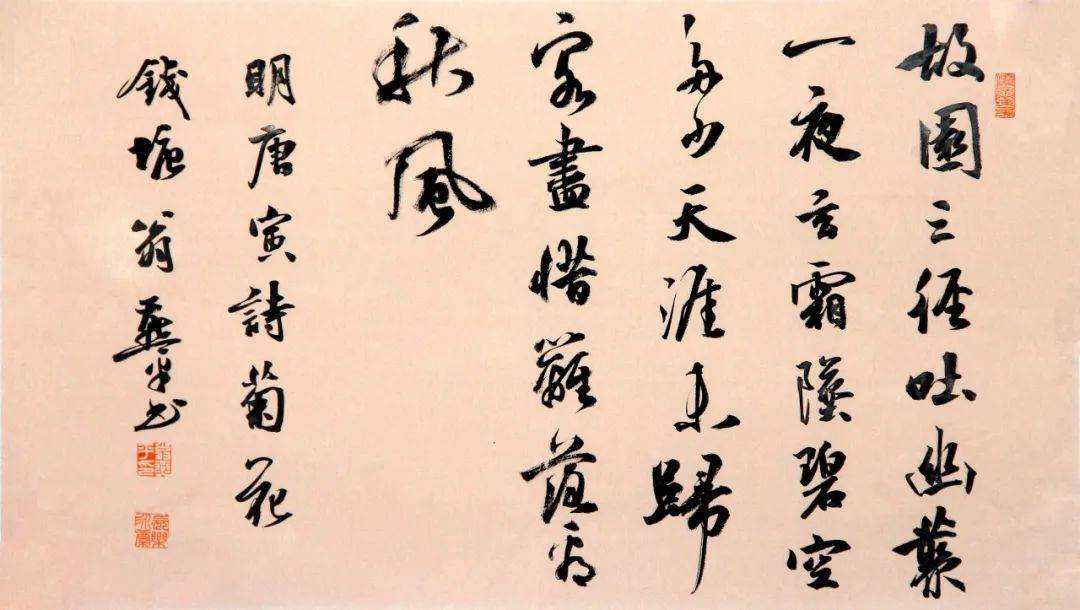 故園三徑吐幽叢
一夜玄霜墜碧空
多少天涯未歸
客盡惜籬落看
秋風
明唐寅詩菊花
錢塘翁書